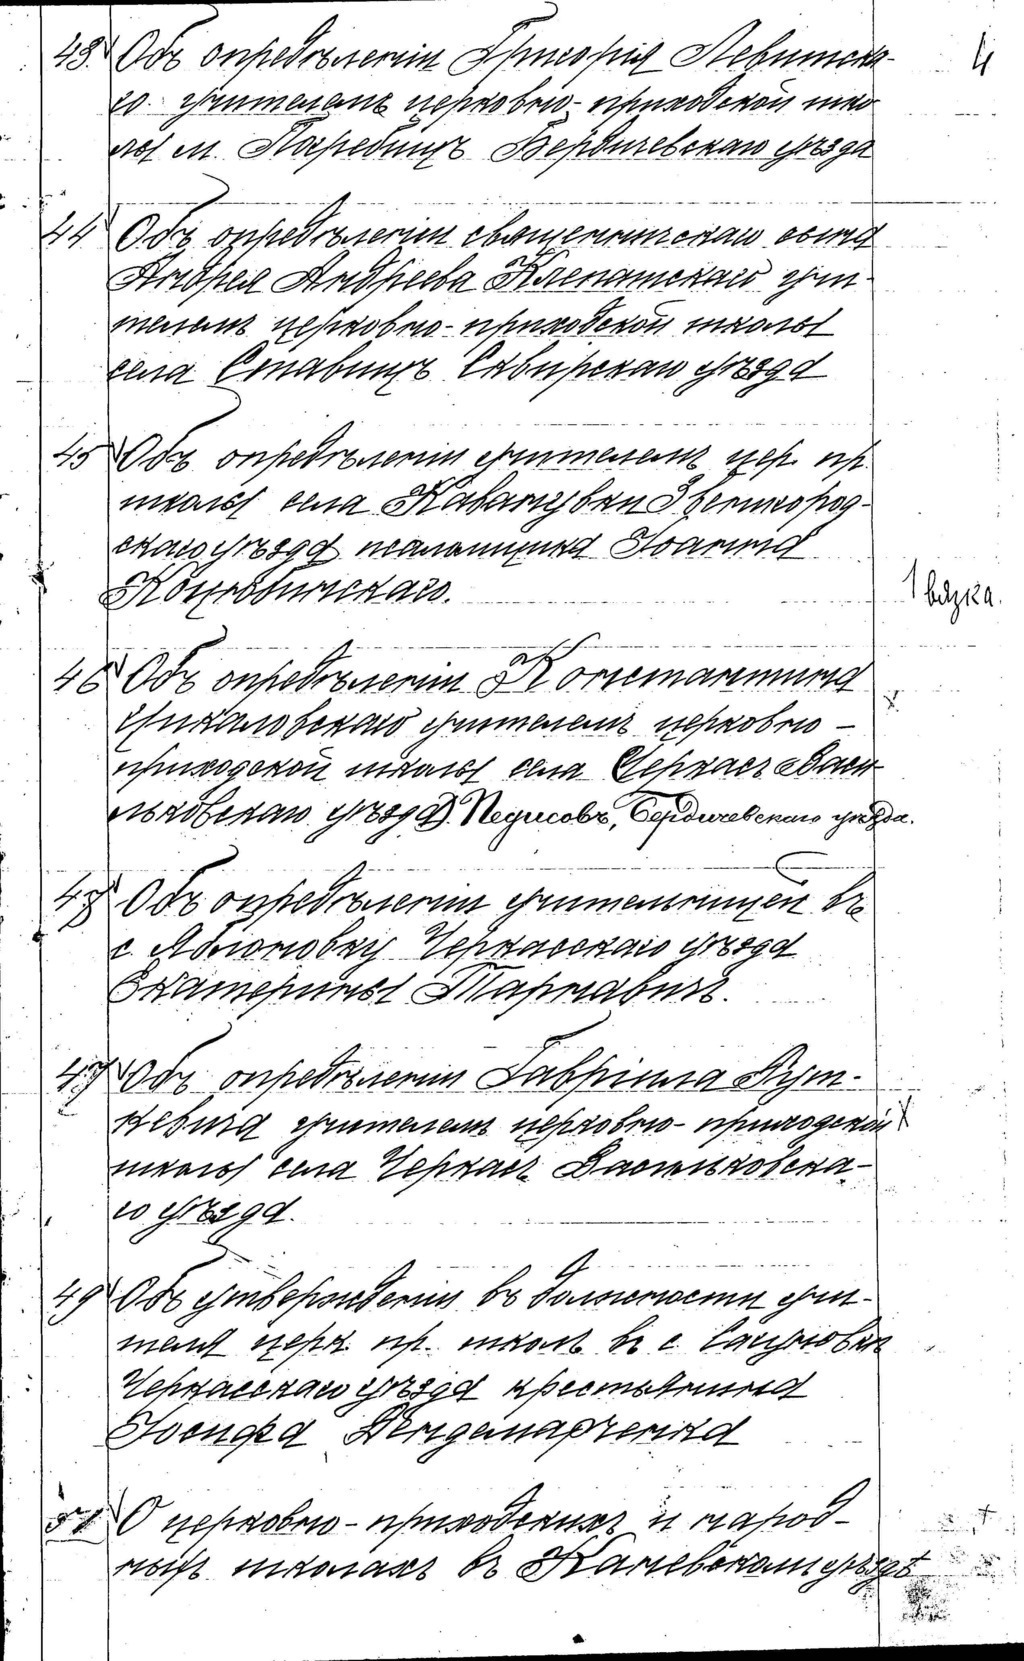 4
43. Объ опредѣленіи Григорія Левитска-
го учителемъ церковно-приходской шко
лы м. Погребищъ Бердичевскаго уѣзда
44 Объ опредѣленіи священническаго сына
Андрея Андреева Клепатскаго учи-
телемъ церковно-приходской школы
села Ставищъ Сквирскаго уѣзда
45 Объ опредѣленіи учителемъ цер. пр.
школы села Звенигород-
скаго уѣзда псаломщика Іоанна
Коцюбинскаго.
1 вязка.
46 Объ опредѣленіи Константина
учителемъ церковно-
приходской школы села Черкасъ Васи-
льковскаго уѣзда Педисовъ, Бердичевскаго уѣзда.
48 Объ опредѣленіи учительницей въ
с. Яблоновку Черкасскаго уѣзда
Екатерины Тарнавичъ.
47 Объ опредѣленіи Гавріила Рут-
кевича учителемъ церковно-приходской
школы села Черкасъ Васильковска-
го уѣзда.
49 Объ утвержденіи въ должности учи-
теля церк. пр. школъ въ с. Сагуновкѣ
Черкасскаго уѣзда крестьянина
Іосифа
51 О церковно-приходскихъ и народ-
ныхъ школахъ въ Каневскомъ уѣздѣ